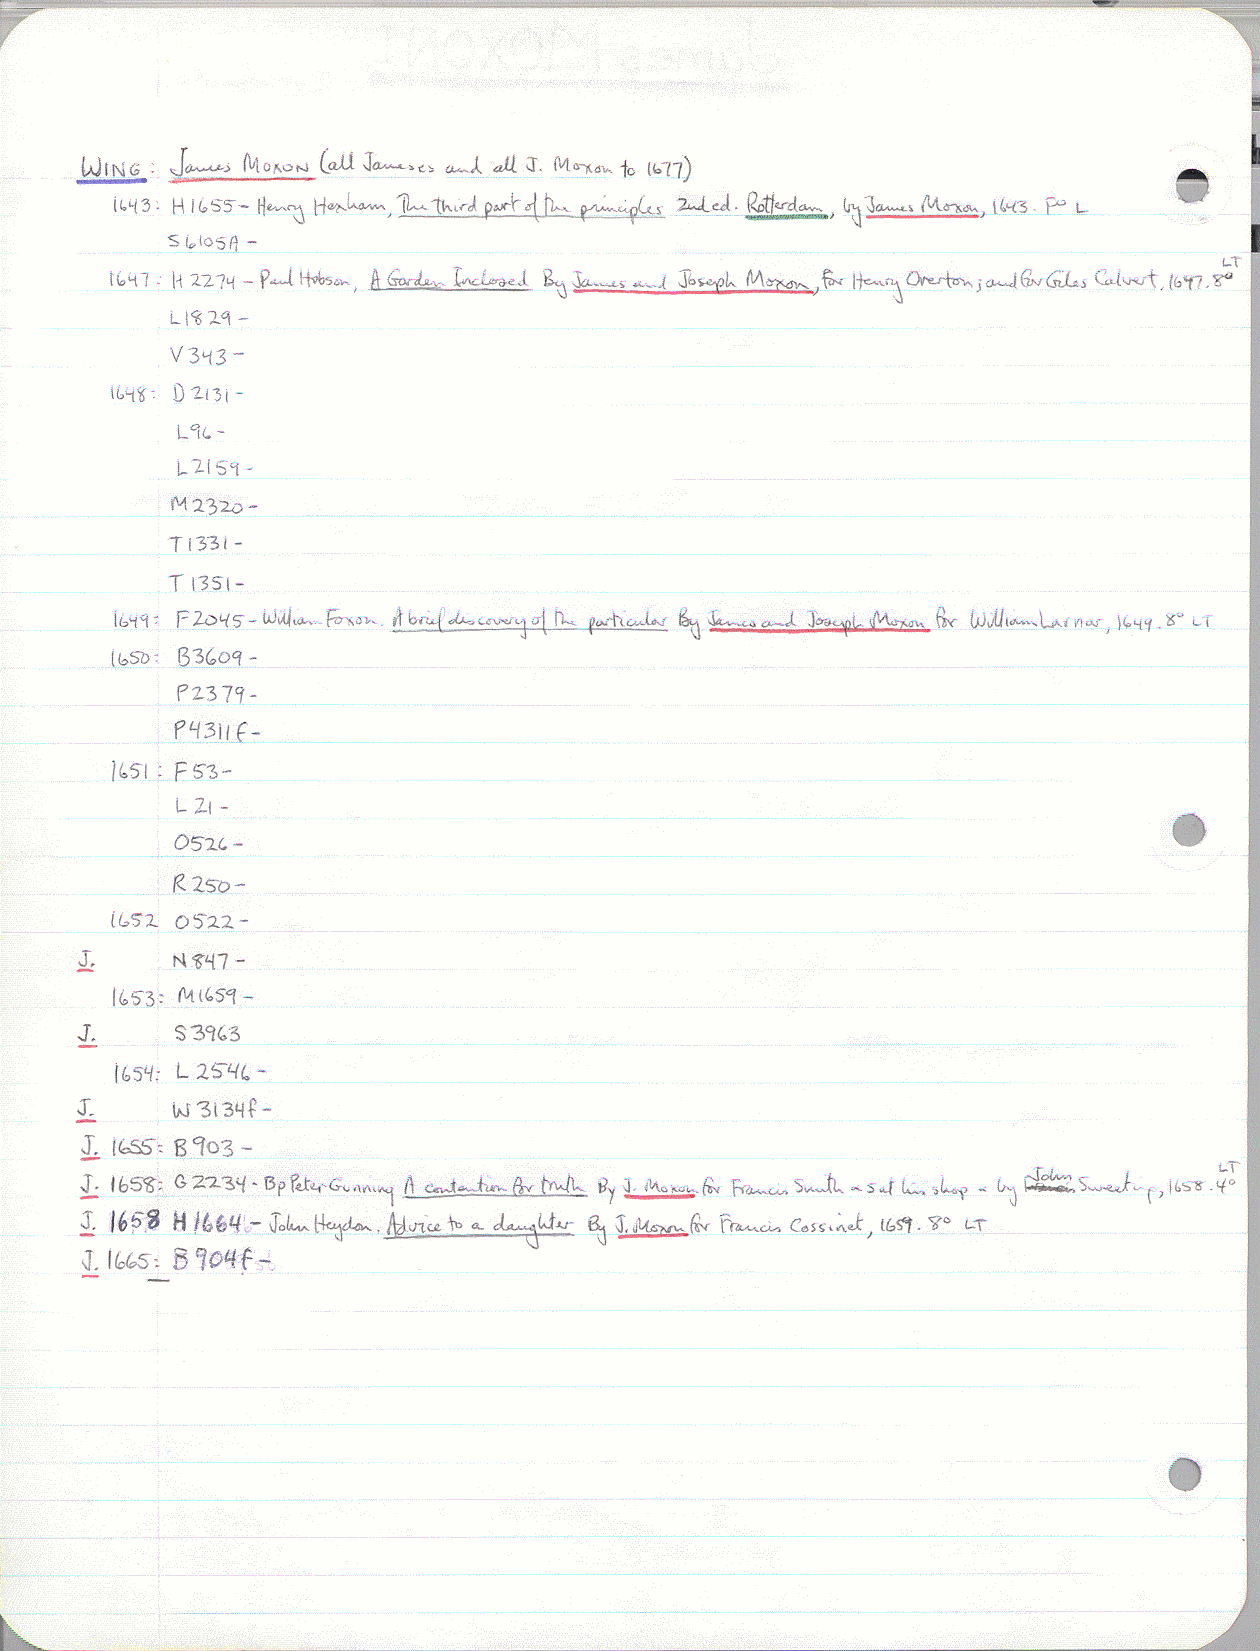 WING: James Moxon (all Jameses and all J. Moxon to 1677)
1643: H1655 - Henry Hexham, The third part of the principles 2nd ed. Rotterdam, by James Moxon, 1643. F° L
S6105A -
1647: H2274 - Paul Hobson, A Garden Inclosed By James and Joseph Moxon, for Henry Overton; and for Giles Calvert, 1647. 8° LT
L1829 -
V343 -
1648: D2131 -
L96 -
L2159 -
M2320 -
T1331 -
T1351 -
1649: F2045 - William Foxon. A brief discovery of the particular By James and Joseph Moxon for William Larnar, 1649. 8° LT
1650: B3609 -
P2379 -
P4311f -
1651: F53 -
L21 -
O526 -
R250 -
1652 O522 -
J. N847 -
1653: M1659 -
J. S3963
1654: L2546 -
J. W3134f -
J. 1655: B903 -
J. 1658: G2234 - Bp Peter Gunning A contention for truth By J. Moxon for Francis Smith at his shop by John Sweeting, 1658. 4° LT
J. 1658 H1664 - John Heydon. Advice to a daughter By J. Moxon for Francis Cossinet, 1659. 8° LT
J. 1665: B904f -